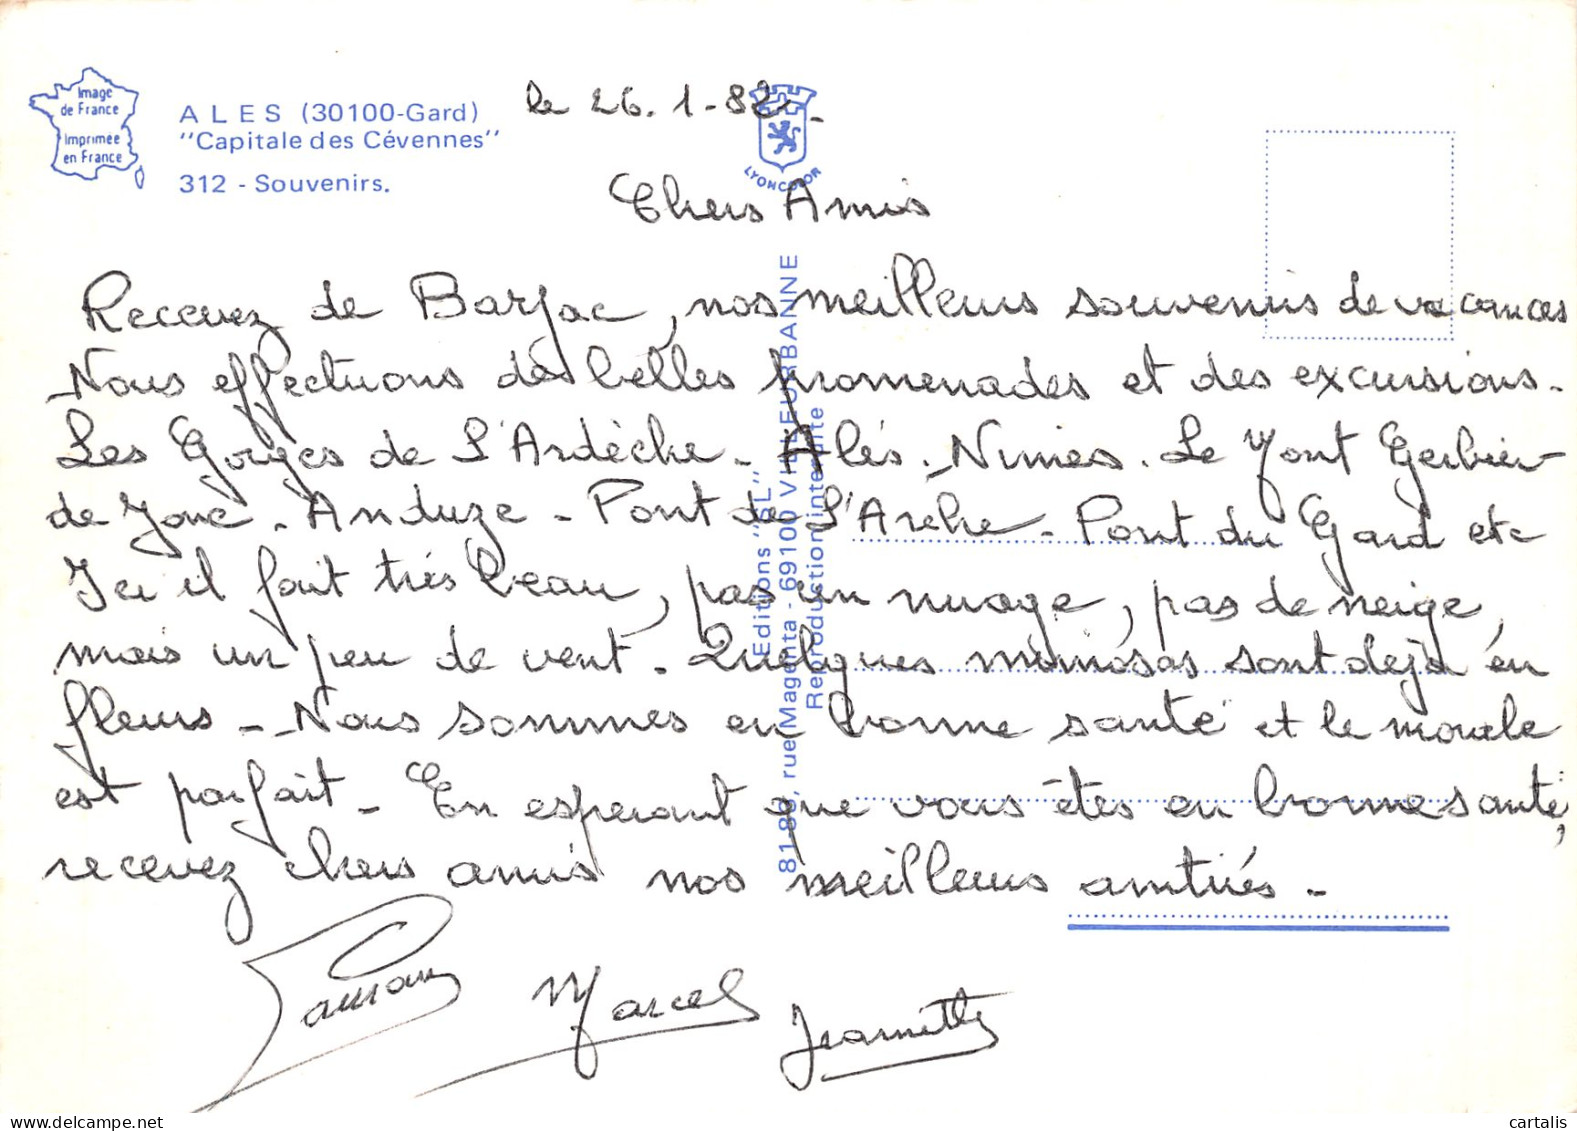 Image
de France
Imprimée
en France
A L E S (30100-Gard)
"Capitale des Cévennes"
312 - Souvenirs.
LYONCOLOR
le 26.1-82-
Chers Amis
Recevez de Barjac, nos meilleurs souvenirs de vacances
Nous effectuons de belles promenades et des excursions.
Les Gorges de L'Ardèche - Alés. Nimes. Le Mont Gerbier
de Jonc. Anduze - Pont de L'Arche - Pont du Gard etc
Ici il fait très beau, pas un nuage, pas de neige,
mais un peu de vent. Quelques mimosas sont dejà en
fleurs - Nous sommes en bonne santé et le morale
est parfait - En esperant que vous êtes en bonne santé,
recevez chers amis nos meilleurs amitiés -
Marcel
Jeannette
Editions "SL"
rue Magenta - 69100 VILLEURBANNE
Reproduction interdite
cartalis